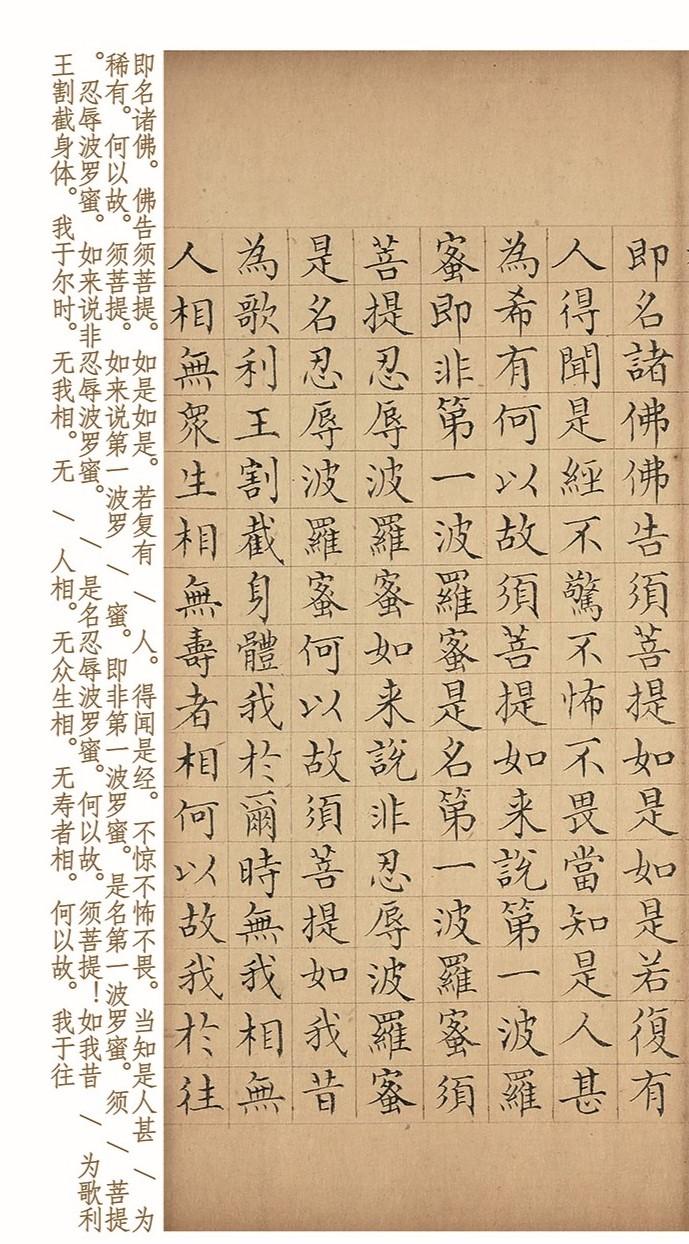 即名諸佛佛告須菩提如是如是若復有
人得聞是經不驚不怖不畏當知是人甚
為希有何以故須菩提如来說第一波羅
蜜即非第一波羅蜜是名第一波羅蜜須
菩提忍辱波羅蜜如来說非忍辱波羅蜜
是名忍辱波羅蜜何以故須菩提如我昔
為歌利王割截身體我於爾時無我相無
人相無衆生相無壽者相何以故我於往
即名诸佛。佛告须菩提。如是如是。若复有 / 人。得闻是经。不惊不怖不畏。当知是人甚 / 为
稀有。何以故。须菩提。如来说第一波罗 / 蜜。即非第一波罗蜜。是名第一波罗蜜。须 / 菩提
。忍辱波罗蜜。如来说非忍辱波罗蜜。 / 是名忍辱波罗蜜。何以故。须菩提！如我昔 / 为歌利
王割截身体。我于尔时。无我相。无 / 人相。无众生相。无寿者相。何以故。我于往